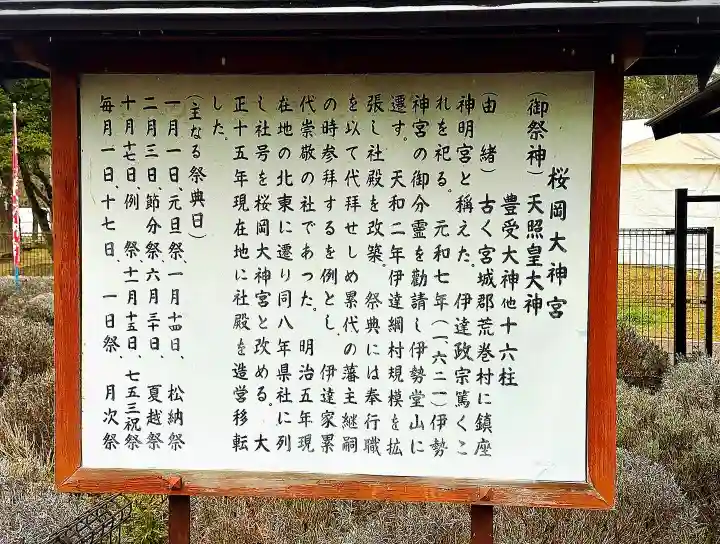 桜岡大神宮
（御祭神）天照皇大神
豊受大神他十六柱
（由　緒）古く宮城郡荒巻村に鎮座
神明宮と稱えた。伊達政宗篤くこ
れを祀る。元和七年（一六二一）伊勢
神宮の御分霊を勸請し伊勢堂山に
遷す。天和二年伊達綱村規模を拡
張し社殿を改築。祭典には奉行職
を以て代拝せしめ累代の藩主継嗣
の時参拝するを例とし、伊達家累
代崇敬の社であった。明治五年現
在地の北東に遷り同八年県社に列
し社号を桜岡大神宮と改める。大
正十五年現在地に社殿を造営移転
した。
（主なる祭典日）
一月一日、元旦祭、一月十四日、松納祭
二月三日、節分祭、六月三十日、夏越祭
十月十七日、例　祭、十一月十五日、七五三祝祭
毎月一日、十七日、一日祭、月次祭